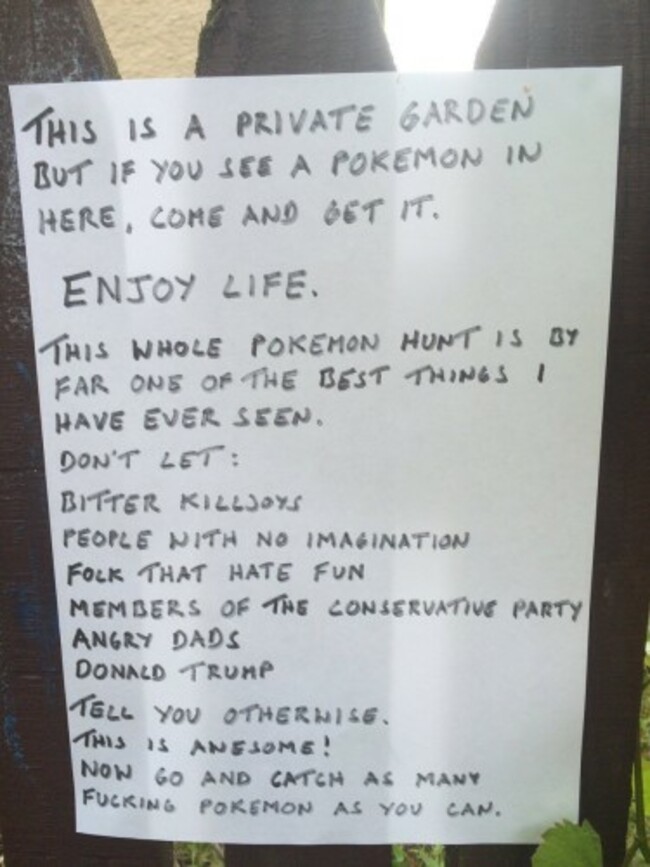 THIS IS A PRIVATE GARDEN
BUT IF YOU SEE A POKEMON IN
HERE, COME AND GET IT.
ENJOY LIFE.
THIS WHOLE POKEMON HUNT IS BY
FAR ONE OF THE BEST THINGS I
HAVE EVER SEEN.
DON'T LET:
BITTER KILLJOYS
PEOPLE WITH NO IMAGINATION
FOLK THAT HATE FUN
MEMBERS OF THE CONSERVATIVE PARTY
ANGRY DADS
DONALD TRUMP
TELL YOU OTHERWISE.
THIS IS AWESOME!
NOW GO AND CATCH AS MANY
FUCKING POKEMON AS YOU CAN.